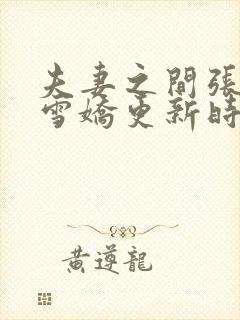 夫妻之間張
雪嬌更新時
黃遵龍